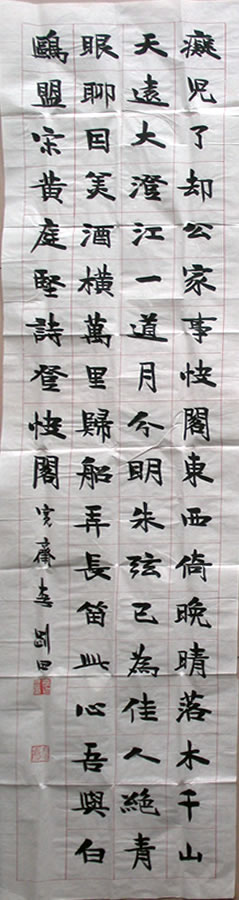 癡兒了却公家事快閣東西倚晚晴落木千山
天遠大澄江一道月分明朱弦已為佳人絕青
眼聊因美酒橫萬里歸船弄長笛此心吾與白
鷗盟宋黄庭堅詩登快閣